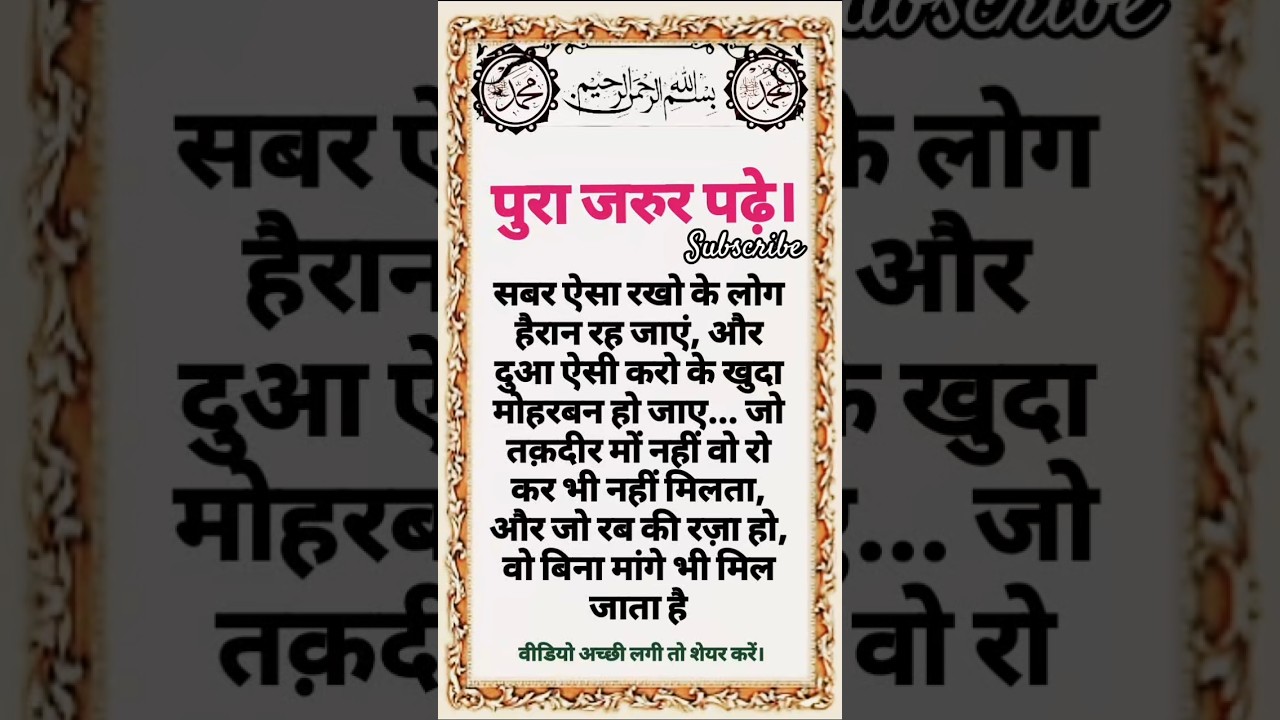 محمد بسم الله الرحمن الرحيم محمد
पुरा जरुर पढ़े।
Subscribe
सबर ऐसा रखो के लोग
हैरान रह जाएं, और
दुआ ऐसी करो के खुदा
मोहरबन हो जाए... जो
तक़दीर मों नहीं वो रो
कर भी नहीं मिलता,
और जो रब की रज़ा हो,
वो बिना मांगे भी मिल
जाता है
वीडियो अच्छी लगी तो शेयर करें।